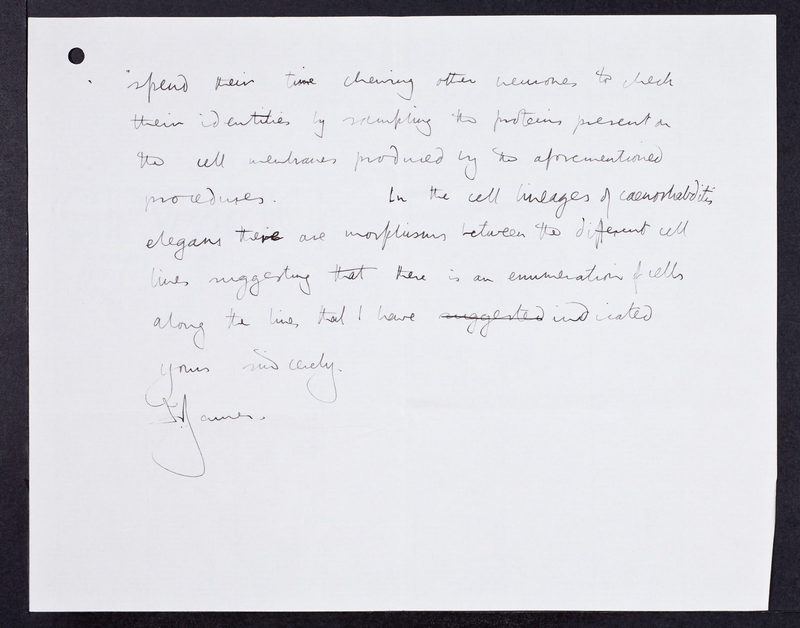 spend their time chewing other neurones to check
their identities by sampling the proteins present on
the cell membranes produced by the aforementioned
procedures. In the cell lineages of caenorhabditis
elegans there are morphisms between the different cell
lines suggesting that there is an enumeration of cells
along the lines that I have suggested indicated
yours sincerely.
James.